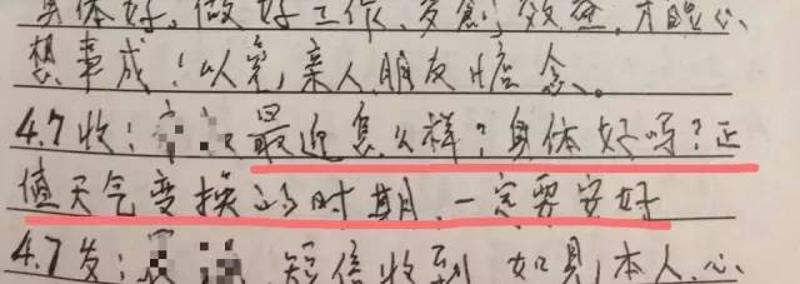 身体好，做好工作，多创效益，才能心
想事成！以宽亲人朋友惦念。
4.7收：最近怎么样？身体好吗？正
值天气变换的时期，一定要安好
4.7发：短信收到 如见本人，心